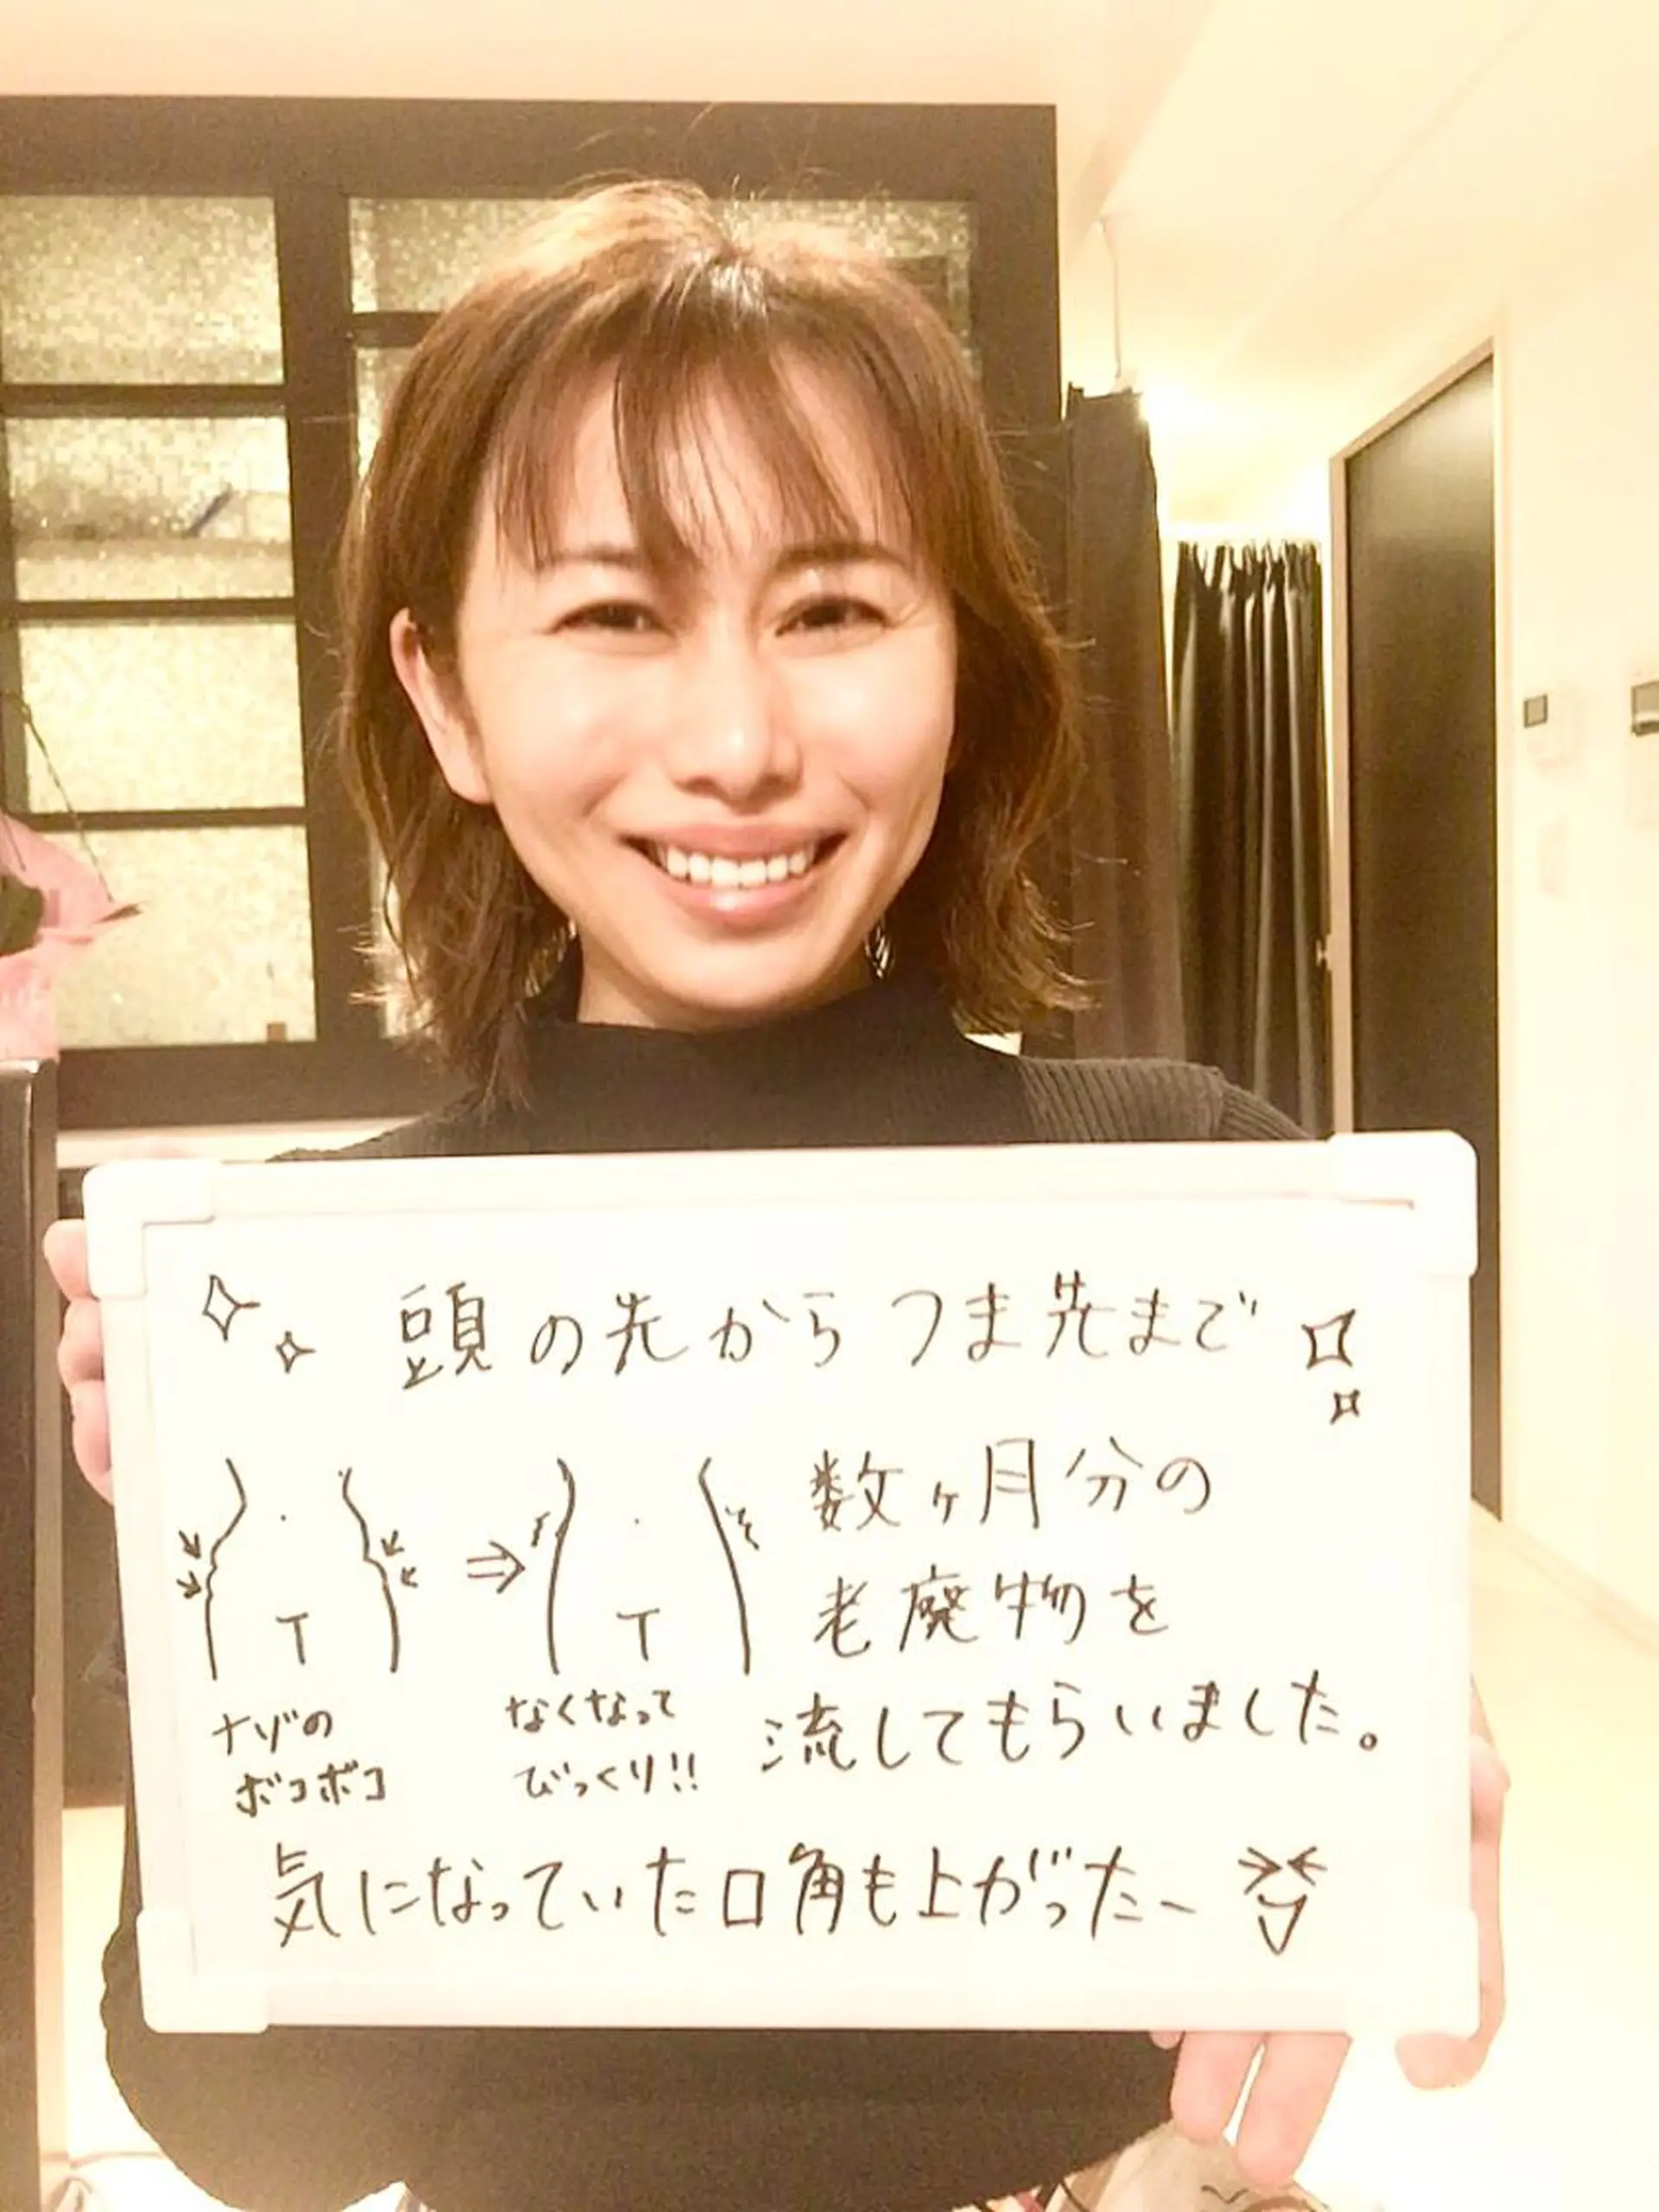 頭の先からつま先まで
数ヶ月分の
老廃物を
流してもらいました。
ナゾの
ボコボコ
なくなって
びっくり!!
気になっていた口角も上がったー